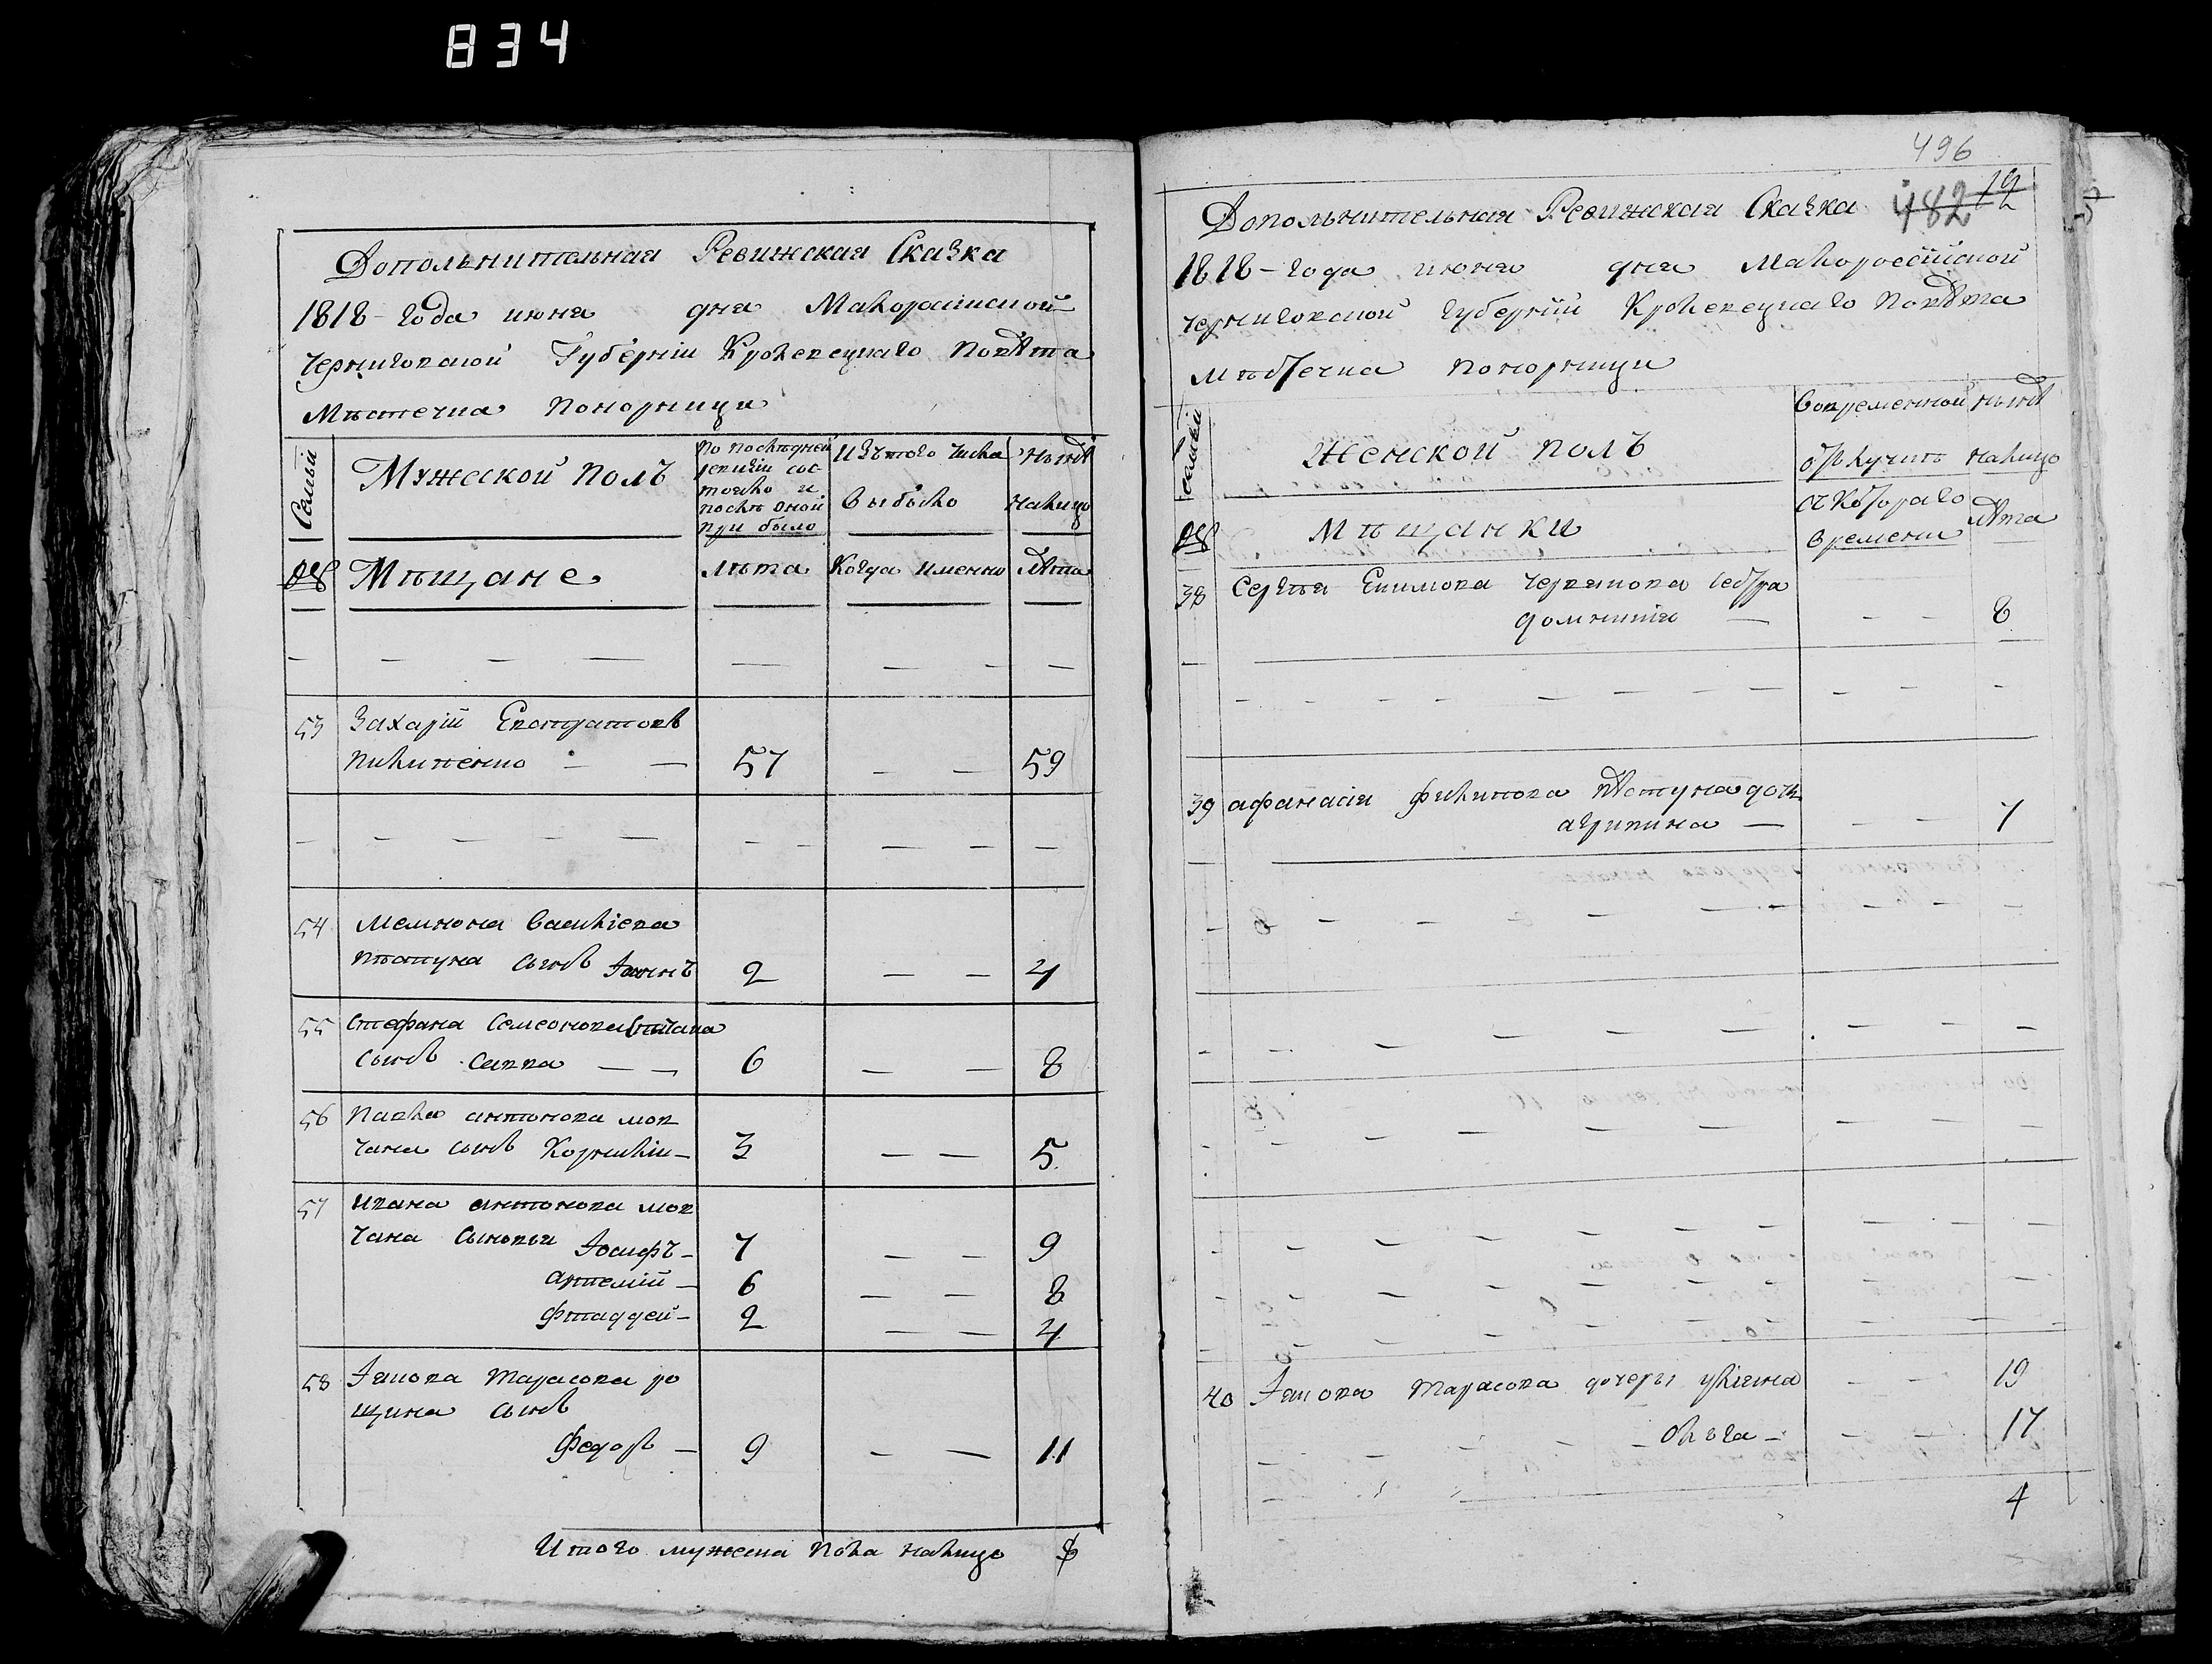 834
Дополънительная Ревижская Сказка
1818 - года июня дня Малоросiйской
черниговской Губернiи Кролевецкаго повѣта
Мѣстечка Понорници
Семьи
Мужеской полъ
По послѣдней
ревизiи сос
тояло и
послѣ оной
при было
Изътого числа
выбыло
нынѣ
налицо
№
Мѣщане
лѣта
Когда именно
лѣта
53 Захарiй Евстратовъ
пилипенко 57 59
54 Мемнона Василiева
пѣтуна сынъ Iоаннъ 2 4
55 Стефана Семеонова
сынъ Савва 6 8
56 Павла антонова мов
чана сынъ Корнилiй 3 5
57 ивана антонова мов
чана сыновья Iосифъ 7 9
артемiй 6 8
фтаддей 2 4
58 Iякова тарасова ро
щина сынъ
федоръ 9 11
Итого мужеска пола налицо 8
496
482 12
Дополънительная Ревижская Сказка
1818 - года июня дня Малоросiйской
черниговской губернiи Кролевецкаго повѣта
мѣстечка понорници
семьи
Женской полъ
вовременной
отлучкѣ
нынѣ
налицо
№
мѣщанки
съ котораго
времени
лѣта
38 Сергѣя Екимова червякова сестра
домникiя 8
39 афанасiя филипова пѣтуна дочь
агрипина 7
40 Iякова тарасова дочеры улiяна 19
олъга 17
4